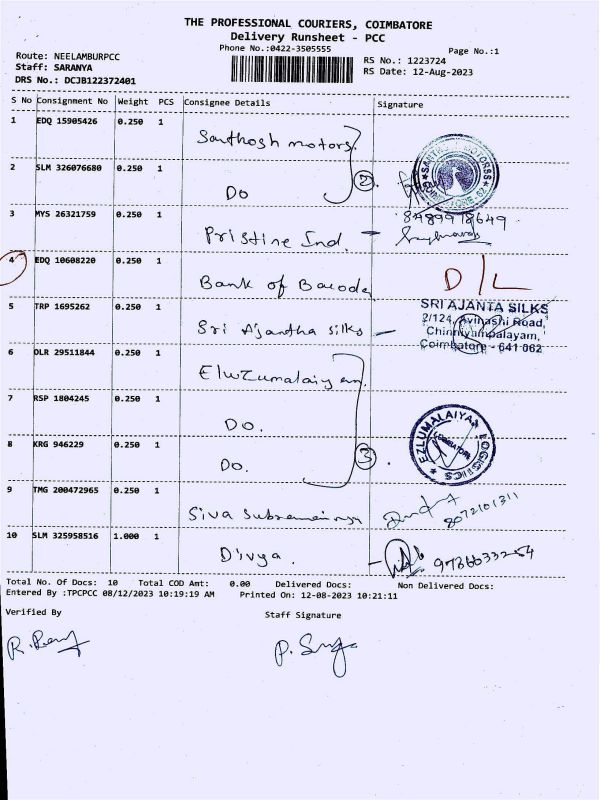 THE PROFESSIONAL COURIERS, COIMBATORE
Delivery Runsheet - PCC
Phone No.:0422-3505555
Page No.:1
Route: NEELAMBURPCC
Staff: SARANYA
DRS No.: DCJB122372401
RS No.: 1223724
RS Date: 12-Aug-2023
S No Consignment No Weight PCS Consignee Details Signature
1 EDQ 15905426 0.250 1 Santhosh motors.
2 SLM 326076680 0.250 1 DO 2
3 MYS 26321759 0.250 1 Pristine Ind. 8489978649
4 EDQ 10608220 0.250 1 Bank of Baroda D/L
5 TRP 1695262 0.250 1 Sri Ajantha silks
SRI AJANTA SILKS
2/124, Avinashi Road,
Chinniyampalayam,
Coimbatore - 641 062
6 DLR 29511844 0.250 1
7 RSP 1804245 0.250 1 Do.
8 KRG 946229 0.250 1 Do. 3
EZLUMALAIYAN LOGISTICS
COIMBATORE
9 TMG 200472965 0.250 1 Siva 8072101311
10 SLM 325958516 1.000 1 Divya.
Total No. Of Docs: 10 Total COD Amt: 0.00 Delivered Docs: Non Delivered Docs:
Entered By :TPCPCC 08/12/2023 10:19:19 AM Printed On: 12-08-2023 10:21:11
Verified By Staff Signature